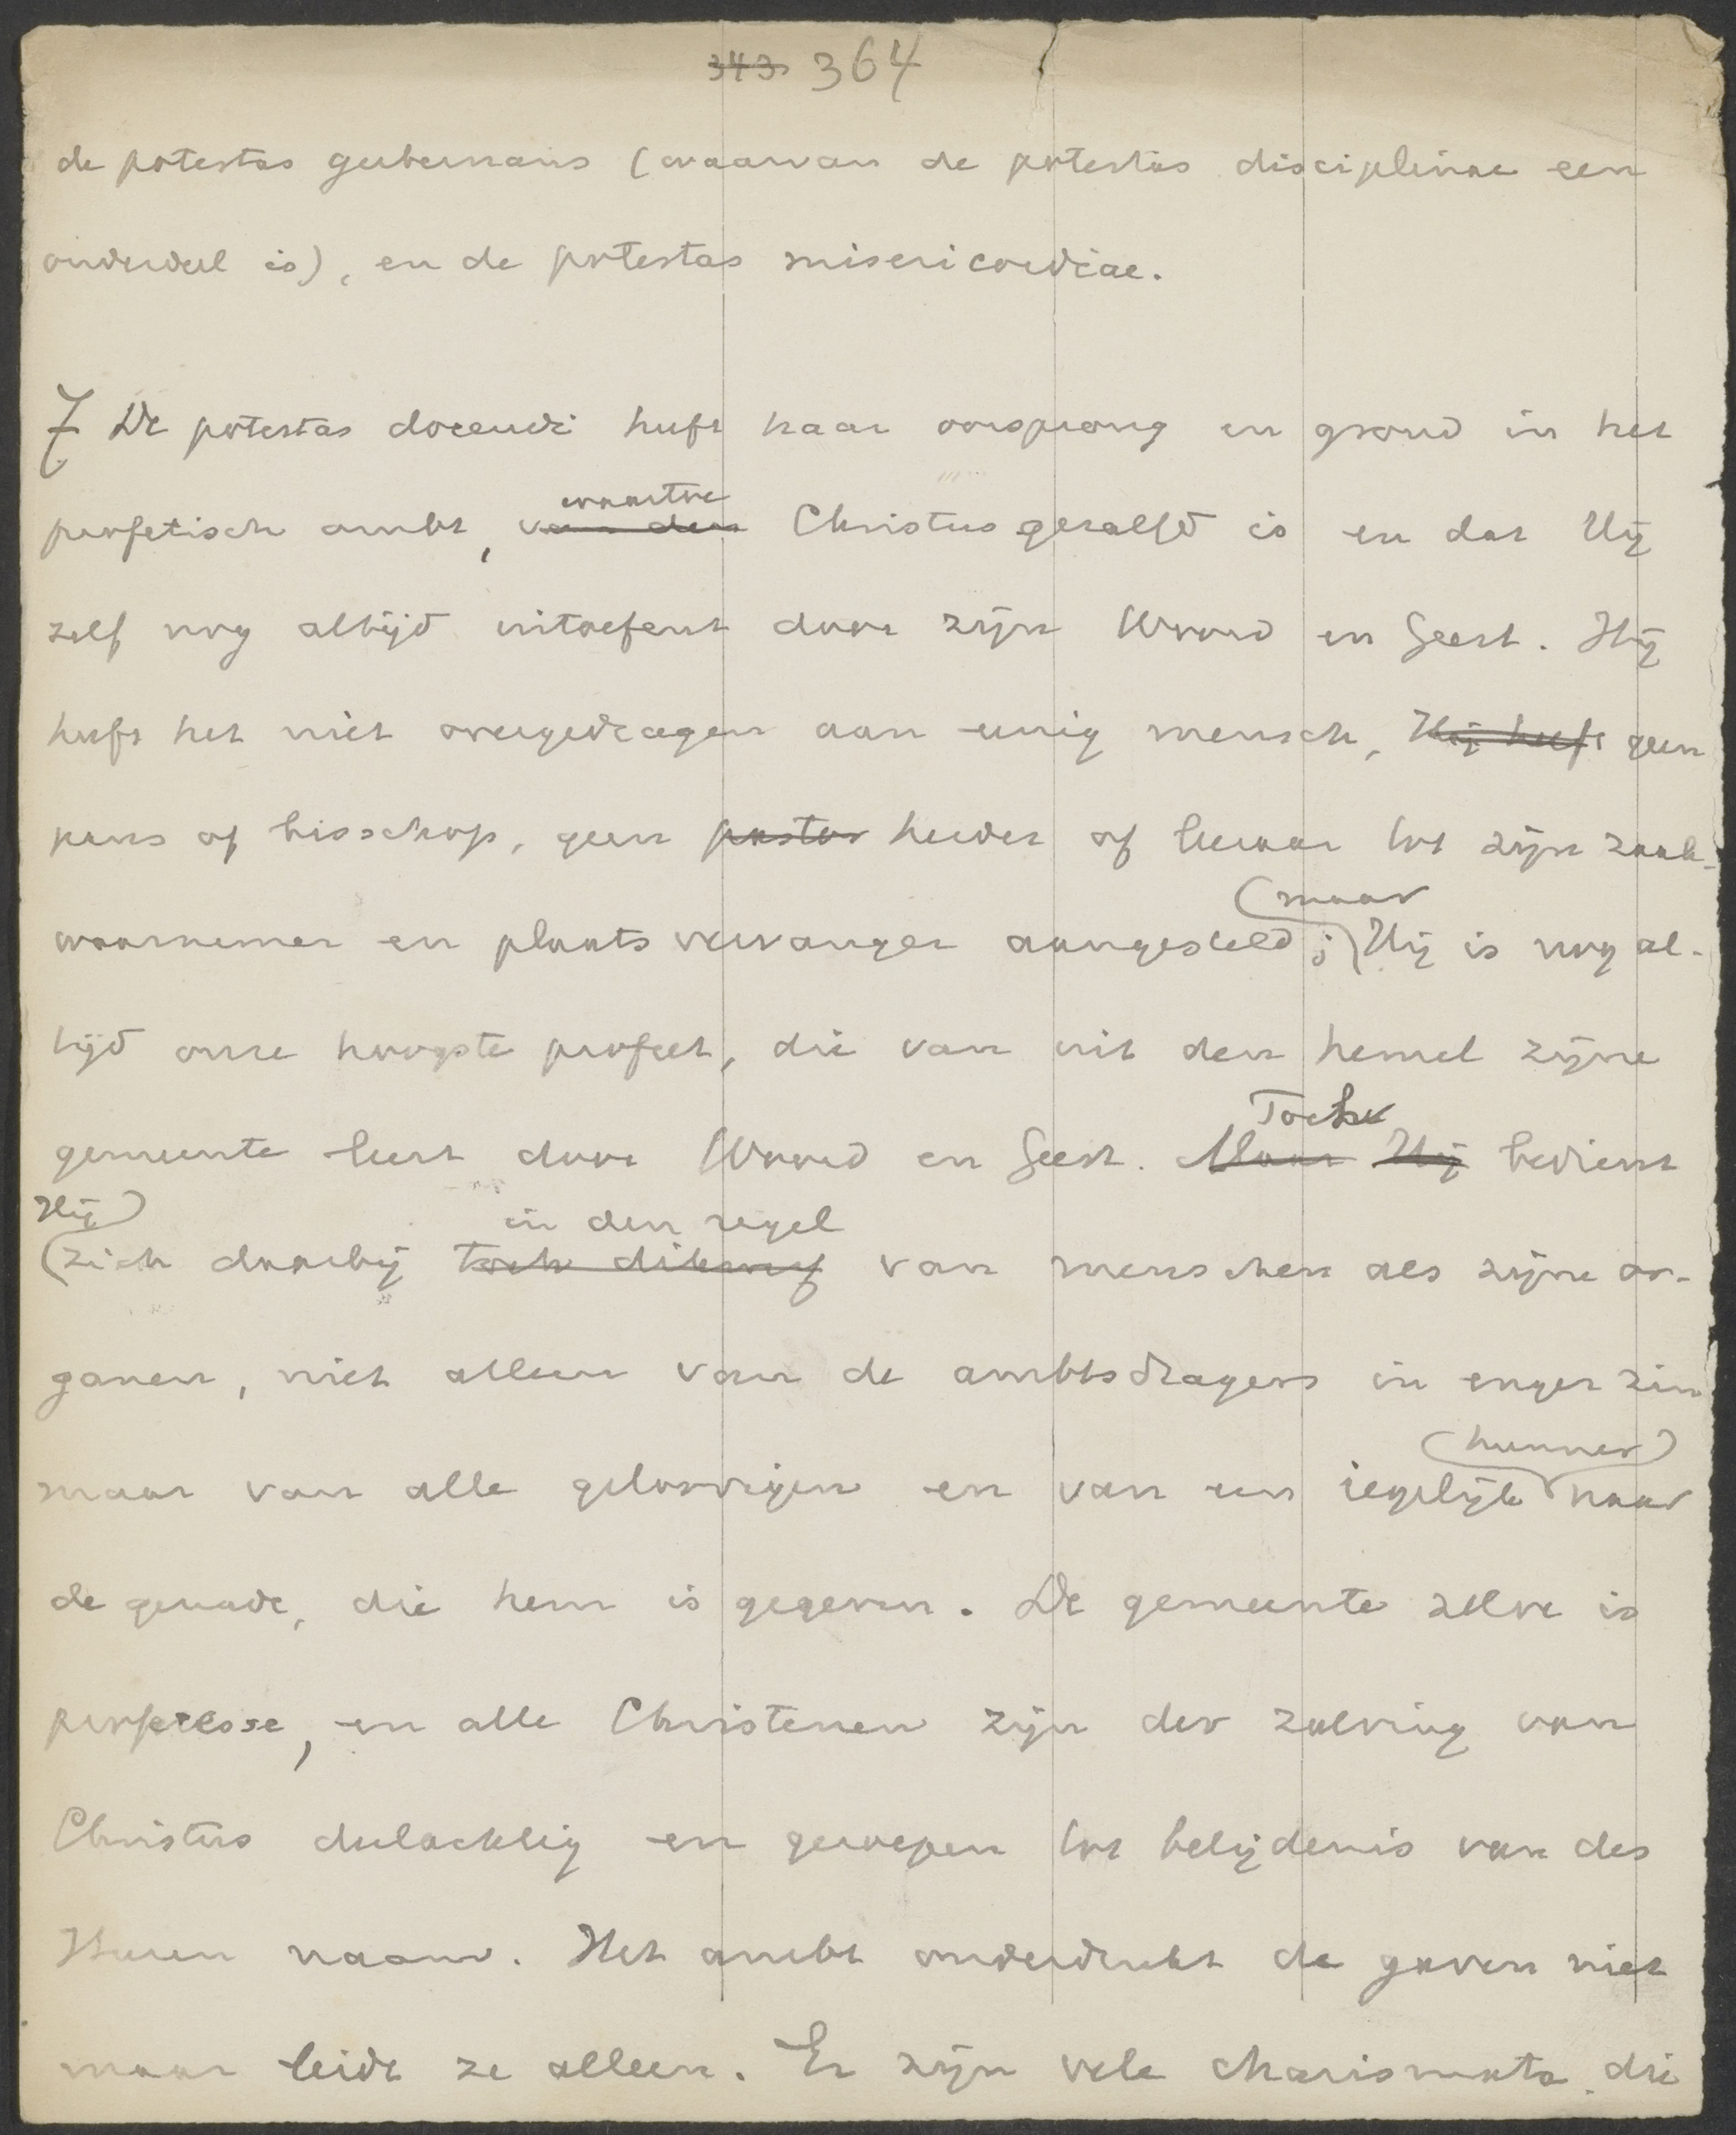 343 364
de potestas gubernans (waarvan de potestas disciplinae een
onderdeel is), en de potestas misericordiae.
7 De potestas docendi heeft haar oorsprong en grond in het
waartoe
profetisch ambt, van den Christus gezalfd is en dat Hij
zelf nog altijd uitoefent door zijn Woord en Geest. Hij
heeft het niet overgedragen aan eenig mensch, Hij heeft geen
paus of bisschop, geen pastor herder of leeraar tot zijn zaak-
(maar
waarnemer en plaatsvervanger aangesteld; Hij is nog al-
tijd onze hoogste profeet, die van uit den hemel zijne
Toch
gemeente leert door Woord en Geest. Maar Hij bedient
Hij) in den regel
(zich daarbij toch van menschen als zijne or-
ganen, niet alleen van de ambtsdragers in enger zin
(hunner)
maar van alle geloovigen en van een iegelijk naar
de genade, die hem is gegeven. De gemeente zelve is
profetesse, en alle Christenen zijn der zalving van
Christus deelachtig en geroepen tot belijdenis van des
Heeren naam. Het ambt onderdrukt de gaven niet
maar leidt ze alleen. Er zijn vele charismata, die